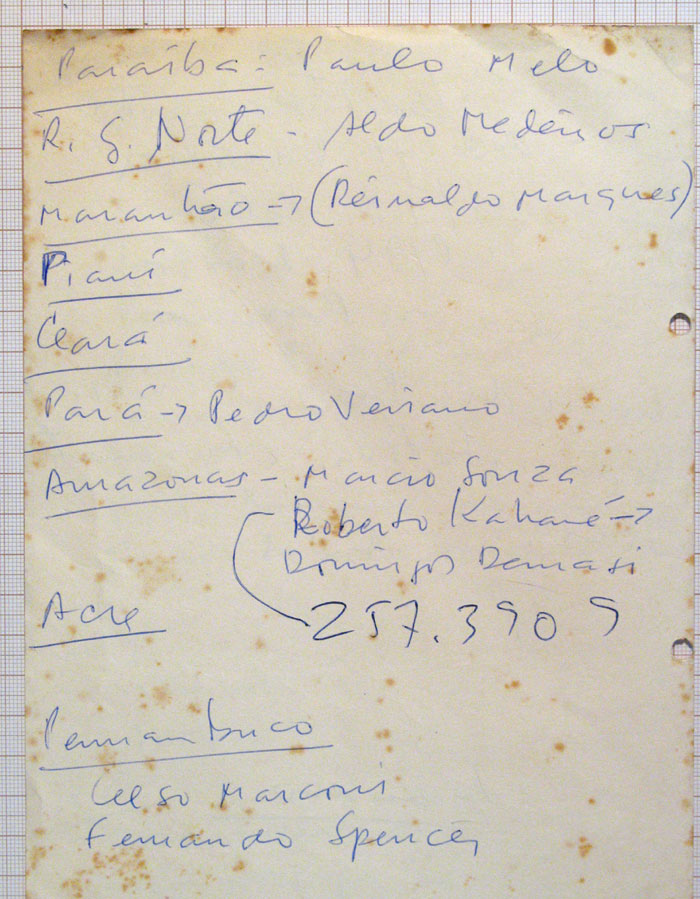 Paraíba: Paulo Melo
R. G. Norte - Aldo Medeiros
Maranhão → (Reinaldo Marques)
Piauí
Ceará
Pará → Pedro Veriano
Amazonas - Marcio Souza
Roberto Kahané →
Domingos Demasi
Acre
257.3909
Pernambuco
Celso Marconi
Fernando Spencer